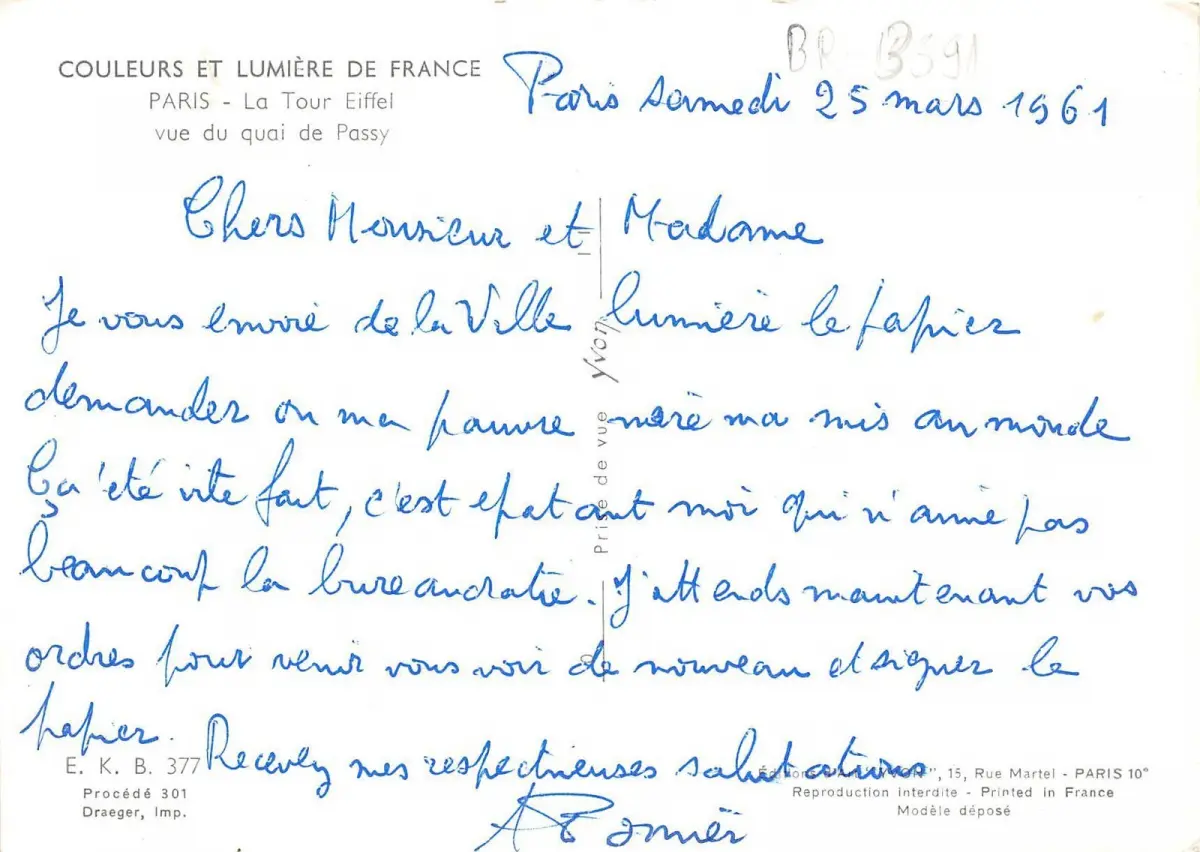 BP-B591
COULEURS ET LUMIÈRE DE FRANCE
PARIS - La Tour Eiffel
vue du quai de Passy
Paris samedi 25 mars 1961
Chers Monsieur et Madame
Je vous envoie de la Ville lumière le papier
demander ou ma pauvre mère ma mis au monde
Ça 'été vite fait, c'est epatant moi qui n'aime pas
beaucoup la bureaucratie. J'attends maintenant vos
ordres pour venir vous voir de nouveau et signer le
papier.
Recevez mes respectueuses salutations
Prise de vue Yvon
E. K. B. 377
Procédé 301
Draeger, Imp.
Éditions d'Art "YVON", 15, Rue Martel - PARIS 10e
Reproduction interdite - Printed in France
Modèle déposé